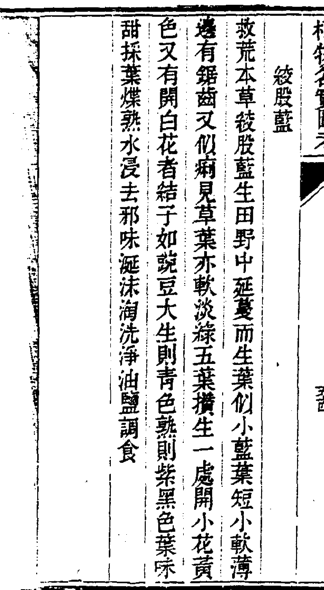 植物名實圖考
絞股藍
救荒本草絞股藍生田野中延蔓而生葉似小藍葉短小軟薄
邊有鋸齒又似痢見草葉亦軟淡綠五葉攢生一處開小花黃
色又有開白花者結子如豌豆大生則青色熟則紫黑色葉味
甜採葉煠熟水浸去邪味涎沫淘洗淨油鹽調食